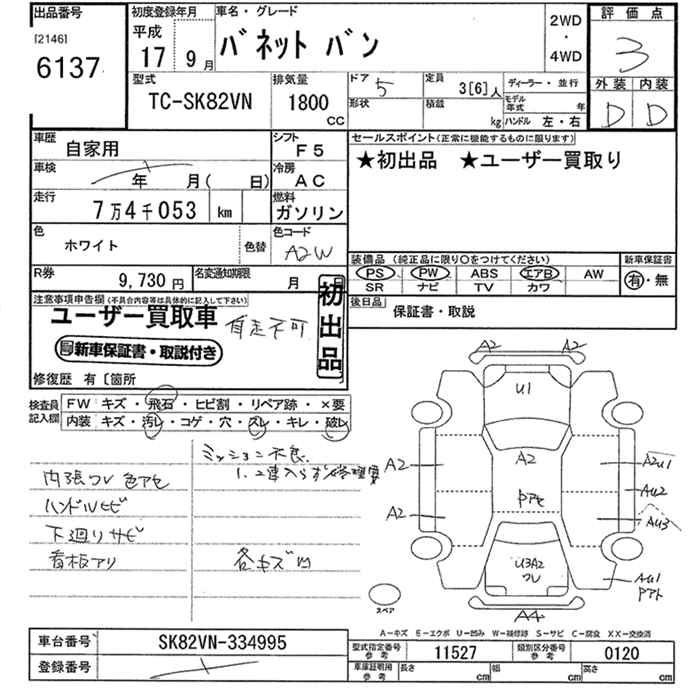 出品番号
[2146]
6137
初度登録年月
平成
17 9月
車名・グレード
バネット バン
2WD
・
4WD
評価点
3
外装 内装
D D
型式
TC-SK82VN
排気量
1800
cc
ドア 5
形状
定員 3[6]人
積載 kg
ディーラー・並行
モデル年式 年
ハンドル 左・右
車歴
自家用
シフト
F5
車検 年 月( 日)
冷房
AC
走行
7万4千053 km
燃料
ガソリン
色
ホワイト
色替
色コード
A2W
R券
9,730円
名変通知期限 月
セールスポイント(正常に機能するものに限ります)
★初出品 ★ユーザー買取り
装備品(純正品に限り○をつけてください)
PS PW ABS エアB AW
SR ナビ TV カワ
新車保証書
有・無
後日品 保証書・取説
注意事項申告欄(不具合内容等は具体的に記入して下さい)
ユーザー買取車 自走不可
新車保証書・取説付き
初出品
修復歴 有〔箇所
検査員記入欄
FW キズ・飛石・ヒビ割・リペア跡・×要
内装 キズ・汚レ・コゲ・穴・スレ・キレ・破レ
ミッション不良
1.2速入らず修理要
内張ワレ 色アセ
ハンドルヒビ
下廻リサビ
看板アリ
各キズ凹
A2 A2
U1
A2
A2
A2U1
AU2
Pアセ
A2
AU3
U3A2
ワレ
AU1
Pアト
A4
スペア
A-キズ E-エクボ U-凹み W-補修跡 S-サビ C-腐食 XX-交換済
車台番号 SK82VN-334995
登録番号
型式指定番号 参考 11527
類別区分番号 参考 0120
車庫証明用 参考 長さ cm 幅 cm 高さ cm